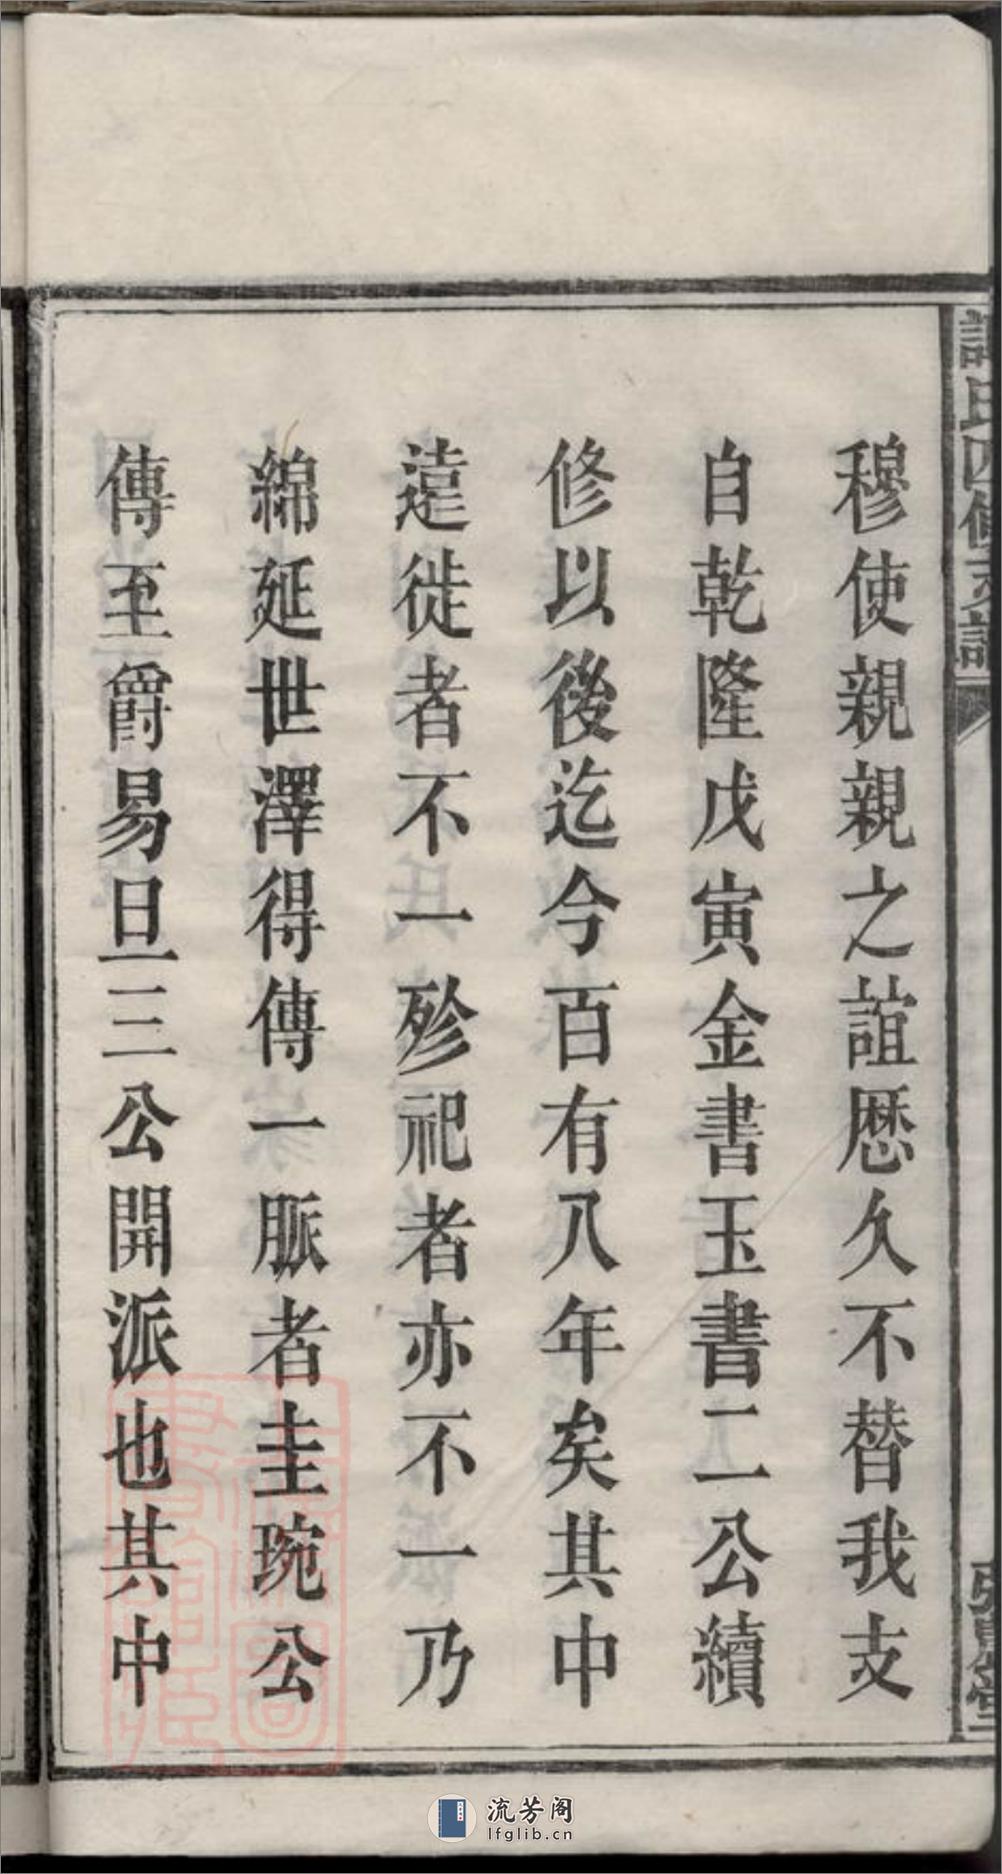 穆使親親之誼歷久不替我支
自乾隆戊寅金書玉書二公續
修以後迄今百有八年矣其中
遠徙者不一殄祀者亦不一乃
綿延世澤得傳一脈者圭琬公
傳至爵易旦三公開派也其中
氏四修支譜
堂
流芳阁
lfglib.cn